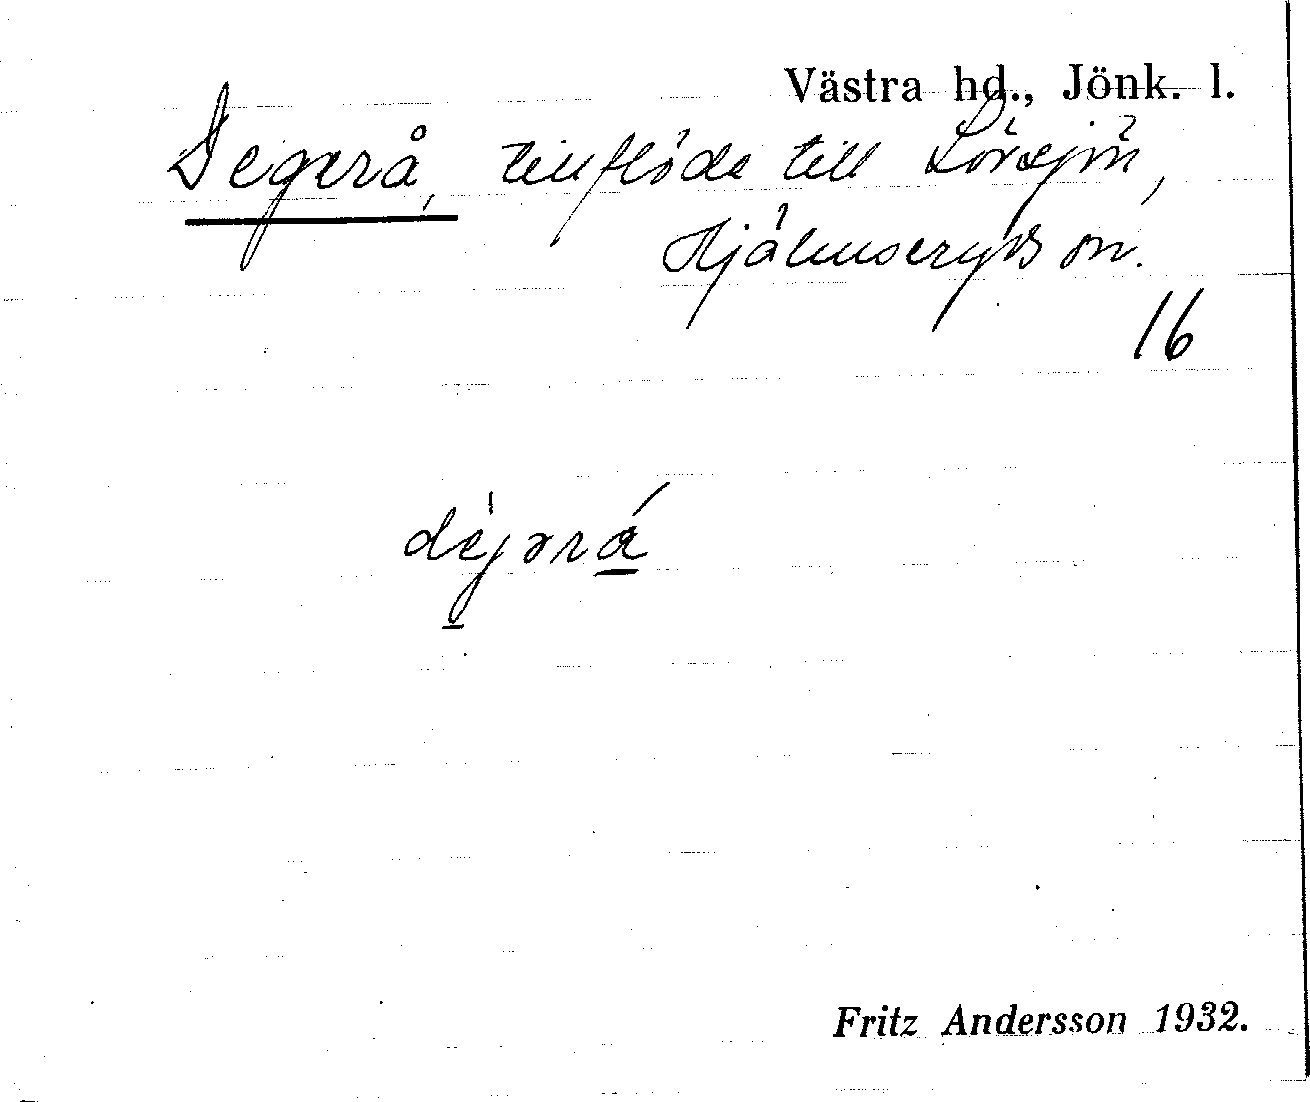 Västra hd., Jönk. l.
Degerå, tillflöde till Lövsjön,
Hjälmseryds sn.
16
dejərå
Fritz Andersson 1932.